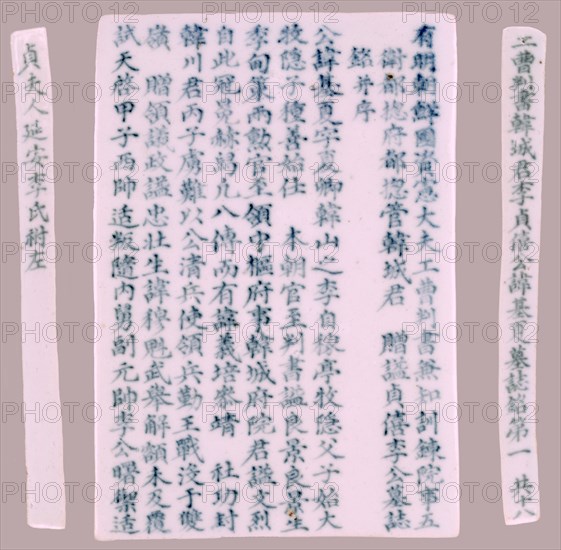 工曹判書韓城君李貞僖公諱基夏墓誌銘第一 共十八
有明朝鮮國資憲大夫工曹判書兼知訓鍊院事五
衛都摠府都摠管韓城君 贈諡貞僖李公墓誌
銘并序
公諱基夏字夏卿韓山之李自稼亭牧隱父子始大
牧隱子種善始仕 本朝官至判書諡良景良景生
季甸策兩勳官至領中樞府事韓城府院君諡文烈
自此冠冕赫舃凡八傳而有諱義培忝靖 社功封
韓川君丙子虜難以公淸兵使領兵勤王戰沒于雙
嶺 贈領議政諡忠壯生諱穆魁武擧解額未及覆
試天啓甲子西帥适叛隨內舅副元帥李公曙禦适
貞夫人延安李氏祔左
PHOTO12